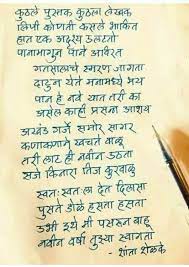 कुठले पुस्तक कुठला लेखक
लिपी कोणती कसले भाकित
हात एक अदृश्य उलटतो
पानामागुन पाने अविरत
गतसालाचे स्मरण जागता
दाटून येते मनामध्ये भय
पान हे नवे यात तरी का
असेल काही प्रसन्न आशय
अखंड गर्जे समोर सागर
कणाकणाने खचते वाळू
तरी लाट ही नवीन उठता
सजे किनारा तिज कुरवाळू
स्वतः स्वतःला देत दिलासा
पुसते डोळे हसता हसता
उभी इथे मी पसरून बाहू
नवीन वर्षा तुझ्या स्वागता
- शांता शेळके